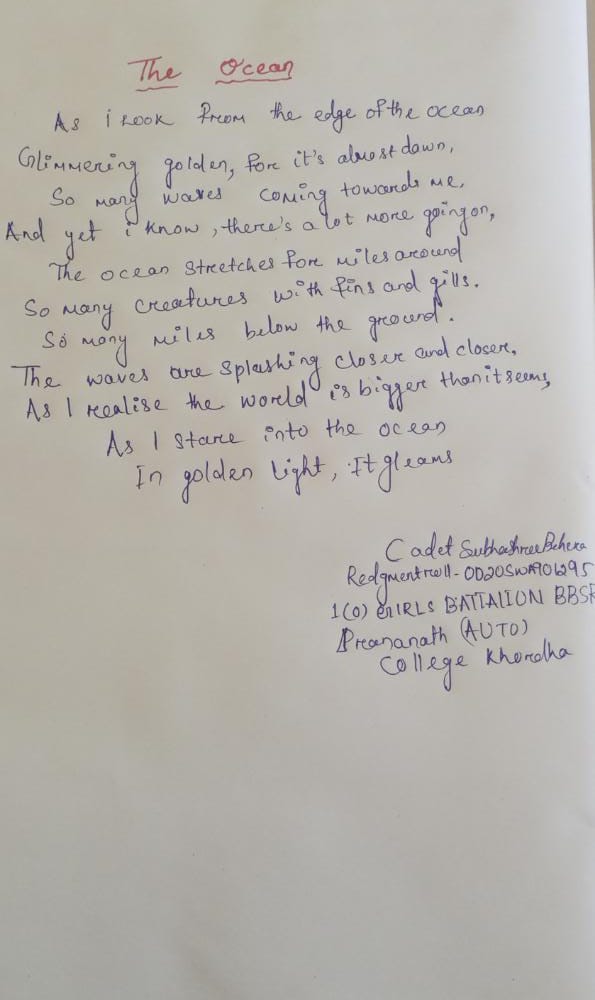 The Ocean
As i look from the edge of the ocean
Glimmering golden, for it's almost dawn,
So many waves coming towards me,
And yet i know, there's a lot more going on,
The ocean stretches for miles around
So many creatures with fins and gills.
So many miles below the ground.
The waves are splashing closer and closer,
As I realise the world is bigger than it seems,
As I stare into the ocean
In golden light, It gleams
Cadet Subhashree Behera
Redgment roll - OD20SWA901295
1(O) GIRLS BATTALION BBSR
Prananath (AUTO)
College Khordha